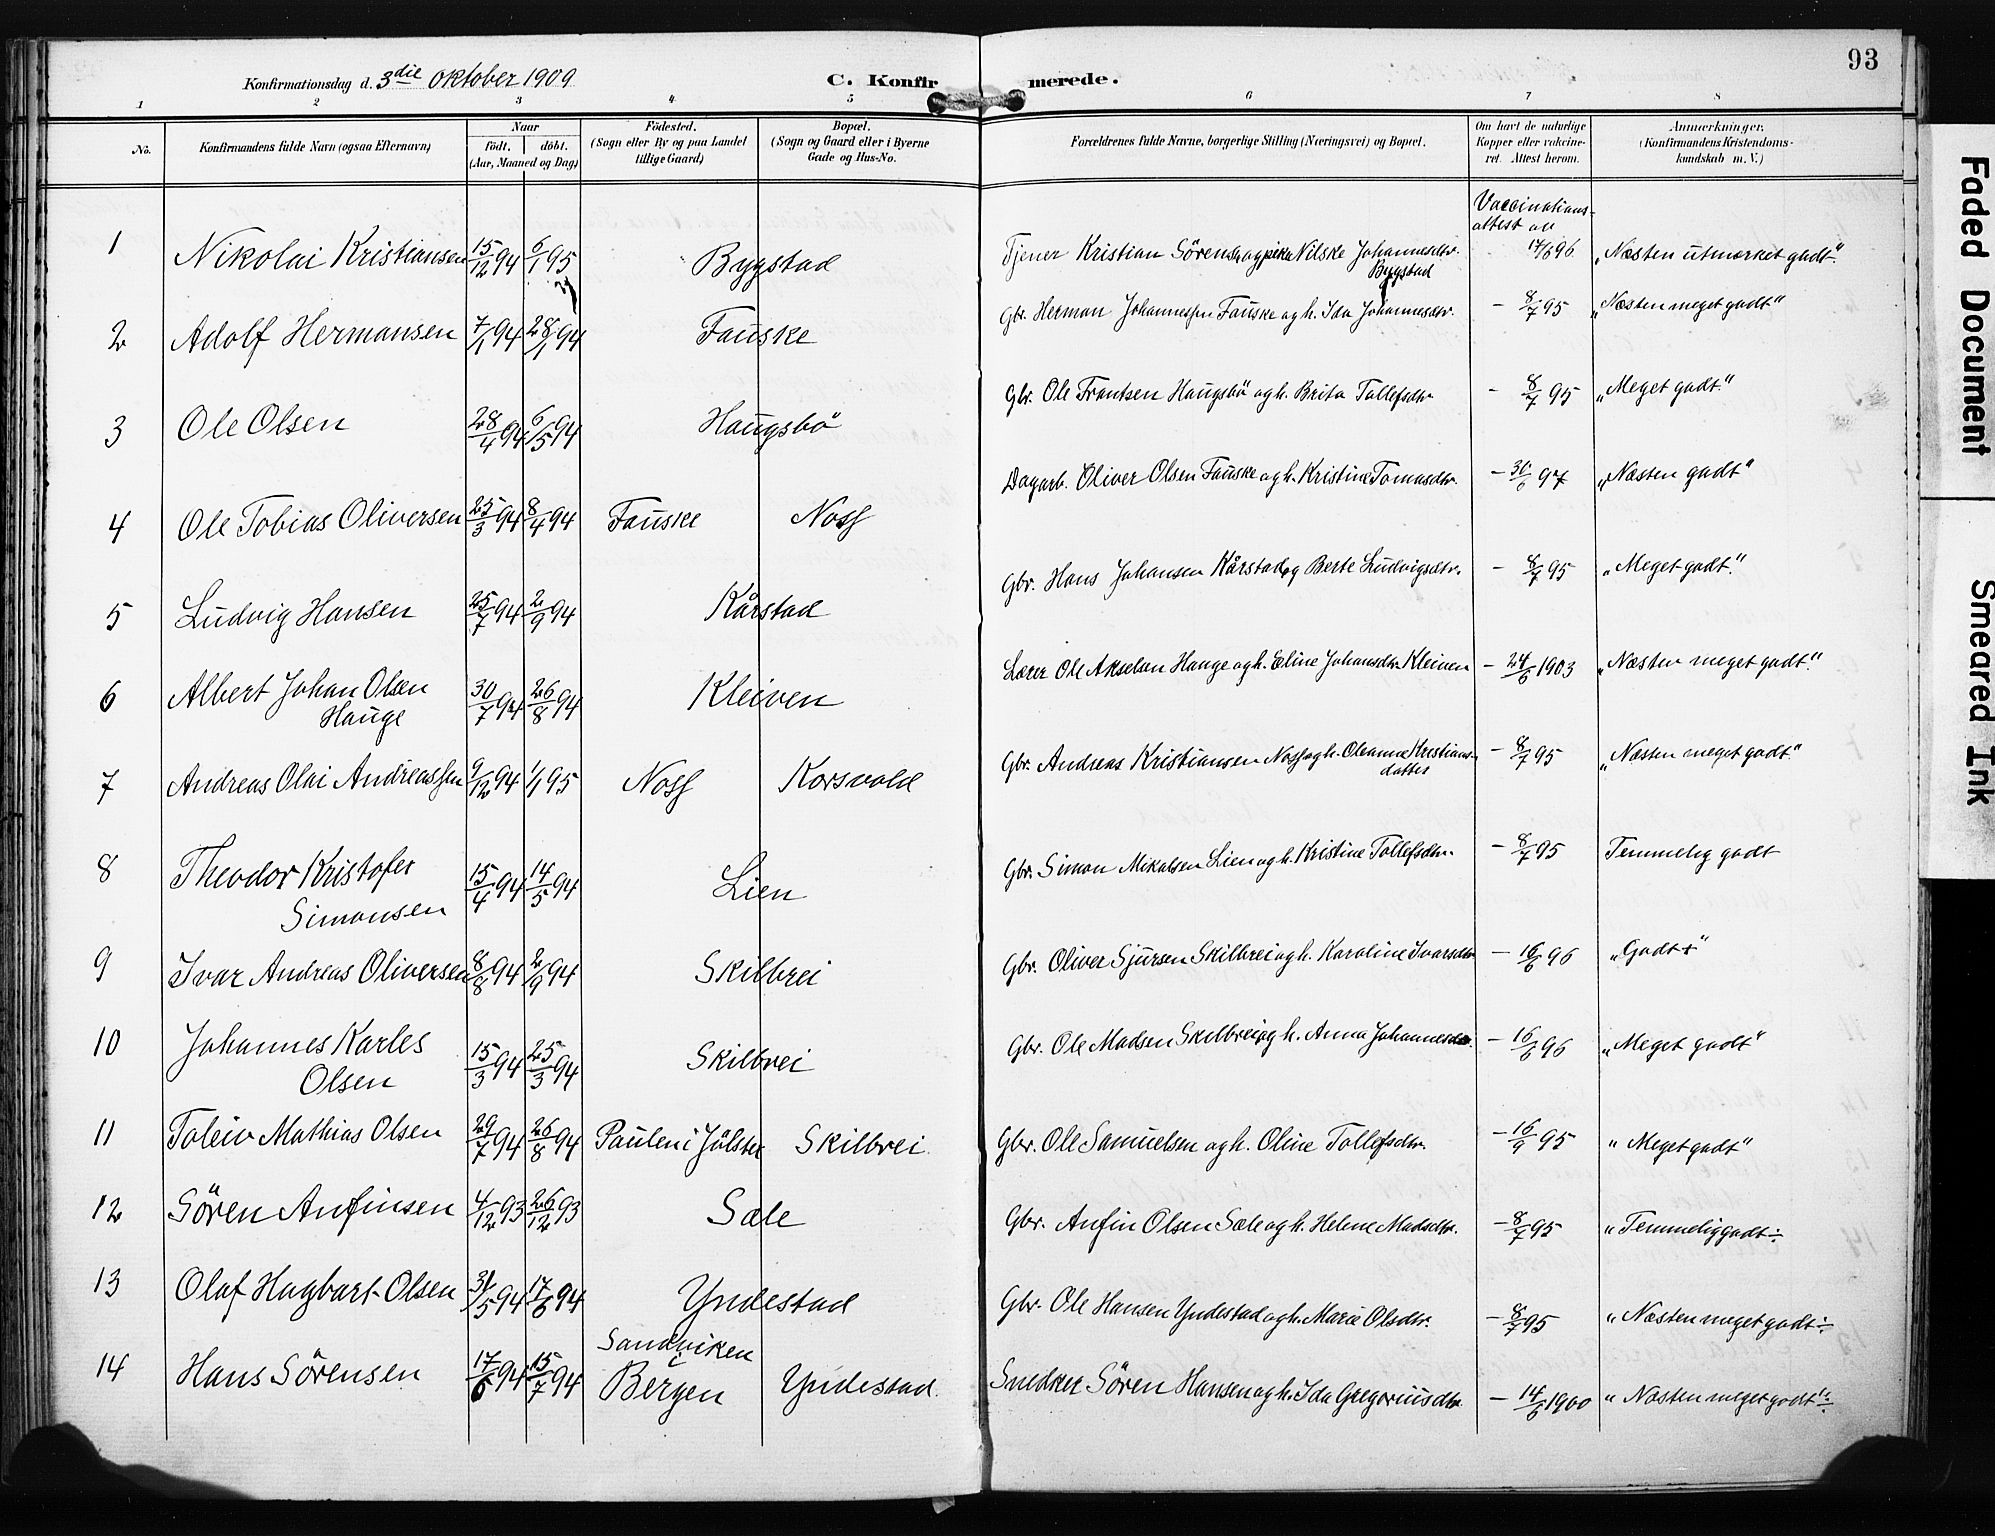 93
Konfirmationsdag d. 3die oktober 1909
C. Konfirmerede.
1 2 3 4 5 6 7 8
No. Konfirmandens fulde Navn (ogsaa Efternavn) Naar født. døbt. (Aar, Maaned og Dag) Fødested. (Sogn eller By og paa Landet tillige Gaard) Bopæl. (Sogn og Gaard eller i Byerne Gade og Hus-No. Forældrenes fulde Navne, borgerlige Stilling (Næringsvei) og Bopæl. Om havt de naturlige Kopper eller vakcineret. Attest herom. Anmærkninger. (Konfirmandens Kristendomskundskab m. V.)
Vaccinations-
attest av
1 Nikolai Kristiansen 15/12 94 6/1 95 Bygstad Tjener Kristian Sörensen og pike Nilske Johannesdtr. Bygstad 17/6 96 „Næsten utmerket godt“
2 Adolf Hermansen 7/1 94 28/1 94 Fauske Gbr. Herman Johannessen Fauske og h. Ida Johannesdtr. – 8/7 95 „Næsten meget godt“
3 Ole Olsen 28/4 94 6/5 94 Haugsbö Gbr. Ole Frantsen Haugsbö og h. Brita Tollefsdtr – 8/7 95 „Meget godt“
4 Ole Tobias Oliversen 25/3 94 8/4 94 Fauske Noss Dagarb. Oliver Olsen Fauske og h. Kristine Tomasdtr. – 30/6 97 „Næsten godt“
5 Ludvig Hansen 25/7 94 2/9 94 Kårstad Gbr. Hans Johansen Kårstad og Berte Ludvigsdtr. – 8/7 95 „Meget godt“
6 Albert Johan Olsen Hauge 30/7 94 26/8 94 Kleiven Lærer Ole Akselsen Hauge og h. Eline Johansdtr Kleiven – 24/6 1903 „Næsten meget godt“
7 Andreas Olai Andreassen 9/12 94 1/1 95 Noss Korsvold Gbr. Andreas Kristiansen Noss og h. Oleanne Kristiansdatter – 8/7 95 „Næsten meget godt“
8 Theodor Kristofer Simonsen 15/4 94 14/5 94 Lien Gbr. Simon Mikalsen Lien og h. Kristine Tollefsdtr. – 8/7 95 Temmelig godt
9 Ivar Andreas Oliversen 8/8 94 2/9 94 Skilbrei Gbr. Oliver Sjursen Skilbrei og h. Karoline Ivarsdtr – 16/6 96 „Godt+“
10 Johannes Karles Olsen 15/3 94 25/3 94 Skilbrei Gbr. Ole Madsen Skilbrei og h. Anna Johannesdtr. – 16/6 96 „Meget godt“
11 Toleiv Mathias Olsen 29/7 94 26/8 94 Paulen i Jölster Skilbrei Gbr. Ole Samuelsen og h. Oline Tollefsdtr. – 16/9 95 „Meget godt“
12 Sören Anfinsen 4/12 93 26/12 93 Sæle Gbr. Anfin Olsen Sæle og h. Helene Madsdtr. – 8/7 95 „Temmelig godt÷
13 Olaf Hagbart Olsen 31/5 94 17/6 94 Yndestad Gbr. Ole Hansen Yndestad og h. Marie Olsdtr. – 8/7 95 „Næsten meget godt÷
14 Hans Sörensen 17/6 94 15/7 94 Sandviken i Bergen Yndestad Snedker Sören Hansen og h. Ida Gregoriusdtr. – 14/6 1900 „Næsten meget godt“÷
Faded Document
Smeared Ink